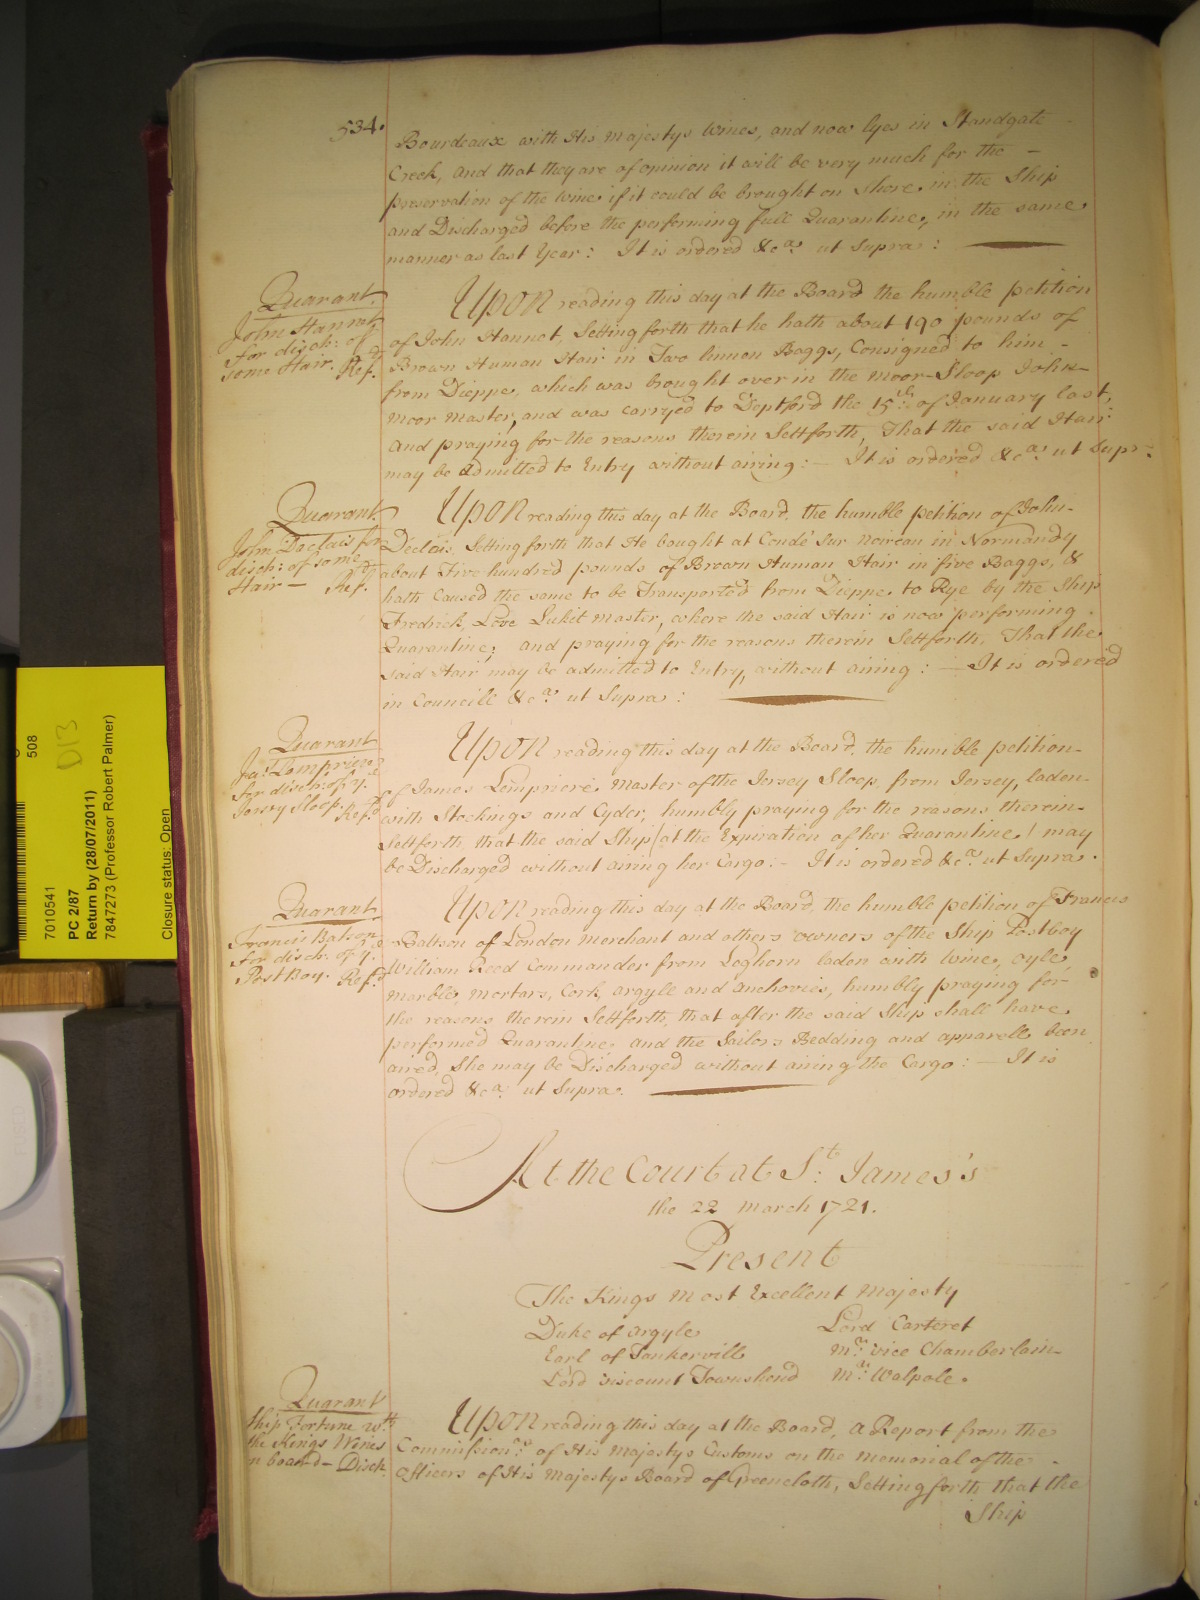 534.
Bourdeaux with His Majestys Wines, and now lyes in Standgate
Creek, and that they are of opinion it will be very much for the -
preservation of the Wine if it could be brought on shore in the Ship
and Discharged before the performing full Quarantine, in the same
manner as last Year: It is ordered &c.a ut Supra:
Quarant.
John Hannot
For disch: of
some Hair. Ref.d
Upon reading this day at the Board the humble petition
of John Hannot, Setting forth that he hath about 190 pounds of
Brown Human Hair in Two linnen Baggs, Consigned to him -
from Dieppe, which was brought over in the Moor-Sloop John-
Moor Master, and was carryed to Deptford the 15.th of January last,
And praying for the reasons therein Settforth, That the said Hair
may be admitted to Entry without airing: - It is ordered &c.a ut Supr:
Quarant.
John Declais for
disch: of some
Hair - Ref.d
Upon reading this day at the Board, the humble petition of John-
Declais, Setting forth that He bought at Condé Sur Noireau in Normandy
about Five hundred pounds of Brown Human Hair in five Baggs, &
hath Caused the same to be Transported from Dieppe to Rye by the Ship
Fredrick Love Luket Master, where the said Hair is now performing
Quarantine; and praying for the reasons therein Settforth, That the
said Hair may be admitted to Entry, without airing: - It is ordered
in Councill &c.a ut Supra:
Quarant
Ja.s Lempriere
for disch: of y.e
Jersy Sloop. Ref.d
Upon reading this day at the Board, the humble petition-
of James Lempriere Master of the Jersey Sloop, from Jersey, laden-
with Stockings and Cyder, humbly praying for the reasons therein-
Settforth, that the said Ship (at the Expiration of her Quarantine) may
be Discharged without airing her Cargo: - It is ordered &c.a ut Supra.
Quarant
Francis Batson
for disch. of y.e
PostBoy. Ref.d
Upon reading this day at the Board, the humble petition of Francis
Baltson of London Merchant and others Owners of the Ship Postboy
William Reed Commander from Leghorn laden with Wine, Oyle
Marble, Mortars, Cork, Argyle and Anchovies, humbly praying for
the reasons therein Settforth, that after the said Ship shall have
performed Quarantine, and the Sailors Bedding and apparell been
aired, She may be Discharged without airing the Cargo: - It is
ordered &c.a ut Supra.
At the Court at S.t James's
the 22 March 1721.
Present
The Kings Most Excellent Majesty
Duke of Argyle Lord Carteret
Earl of Tankervill M.r Vice Chamberlain
Lord Viscount Townshend M.r Walpole.
Quarant
Ship Fortune w.th
the Kings Wines
on board - Disch.
Upon reading this day at the Board, a Report from the
Commission.rs of His Majestys Customs on the Memorial of the
Officers of His Majestys Board of Greencloth, Setting forth that the
Ship
508
D13
7010541
PC 2/87
Return by (28/07/2011)
7847273 (Professor Robert Palmer)
Closure status: Open
FUSED